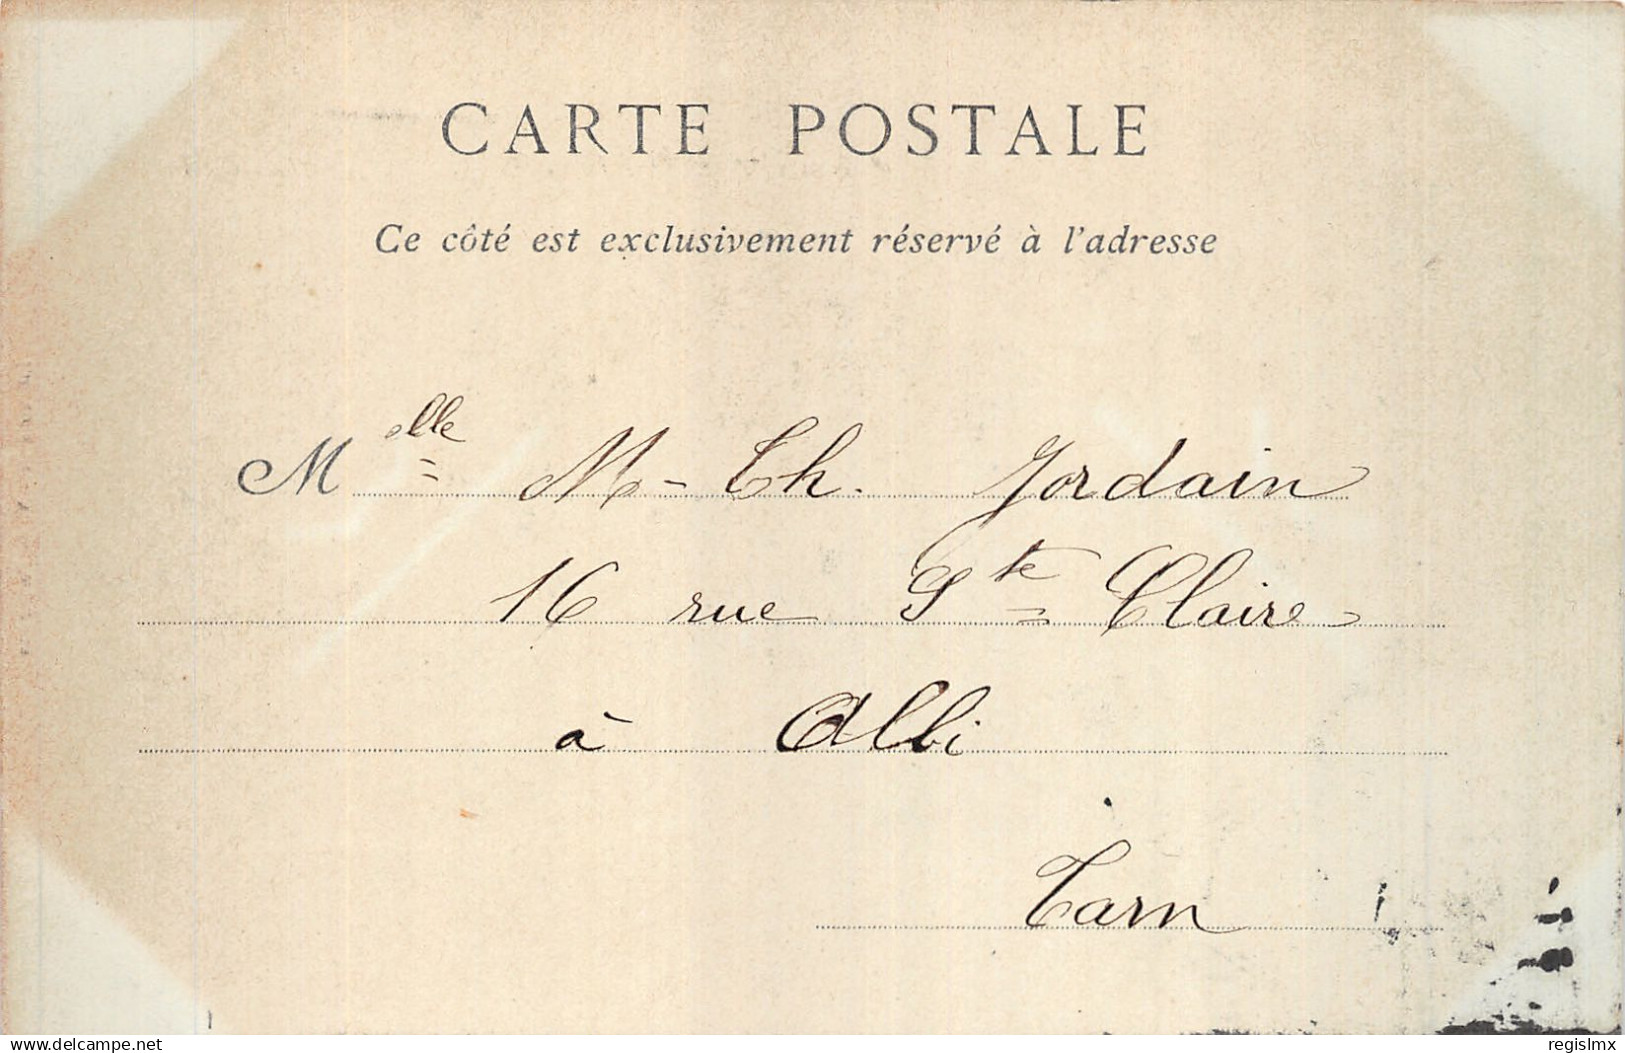 CARTE POSTALE
Ce côté est exclusivement réservé à l'adresse
Melle M-Th. Jordain
16 rue Ste Claire
à Albi
Tarn
delcampe.net
regislmx